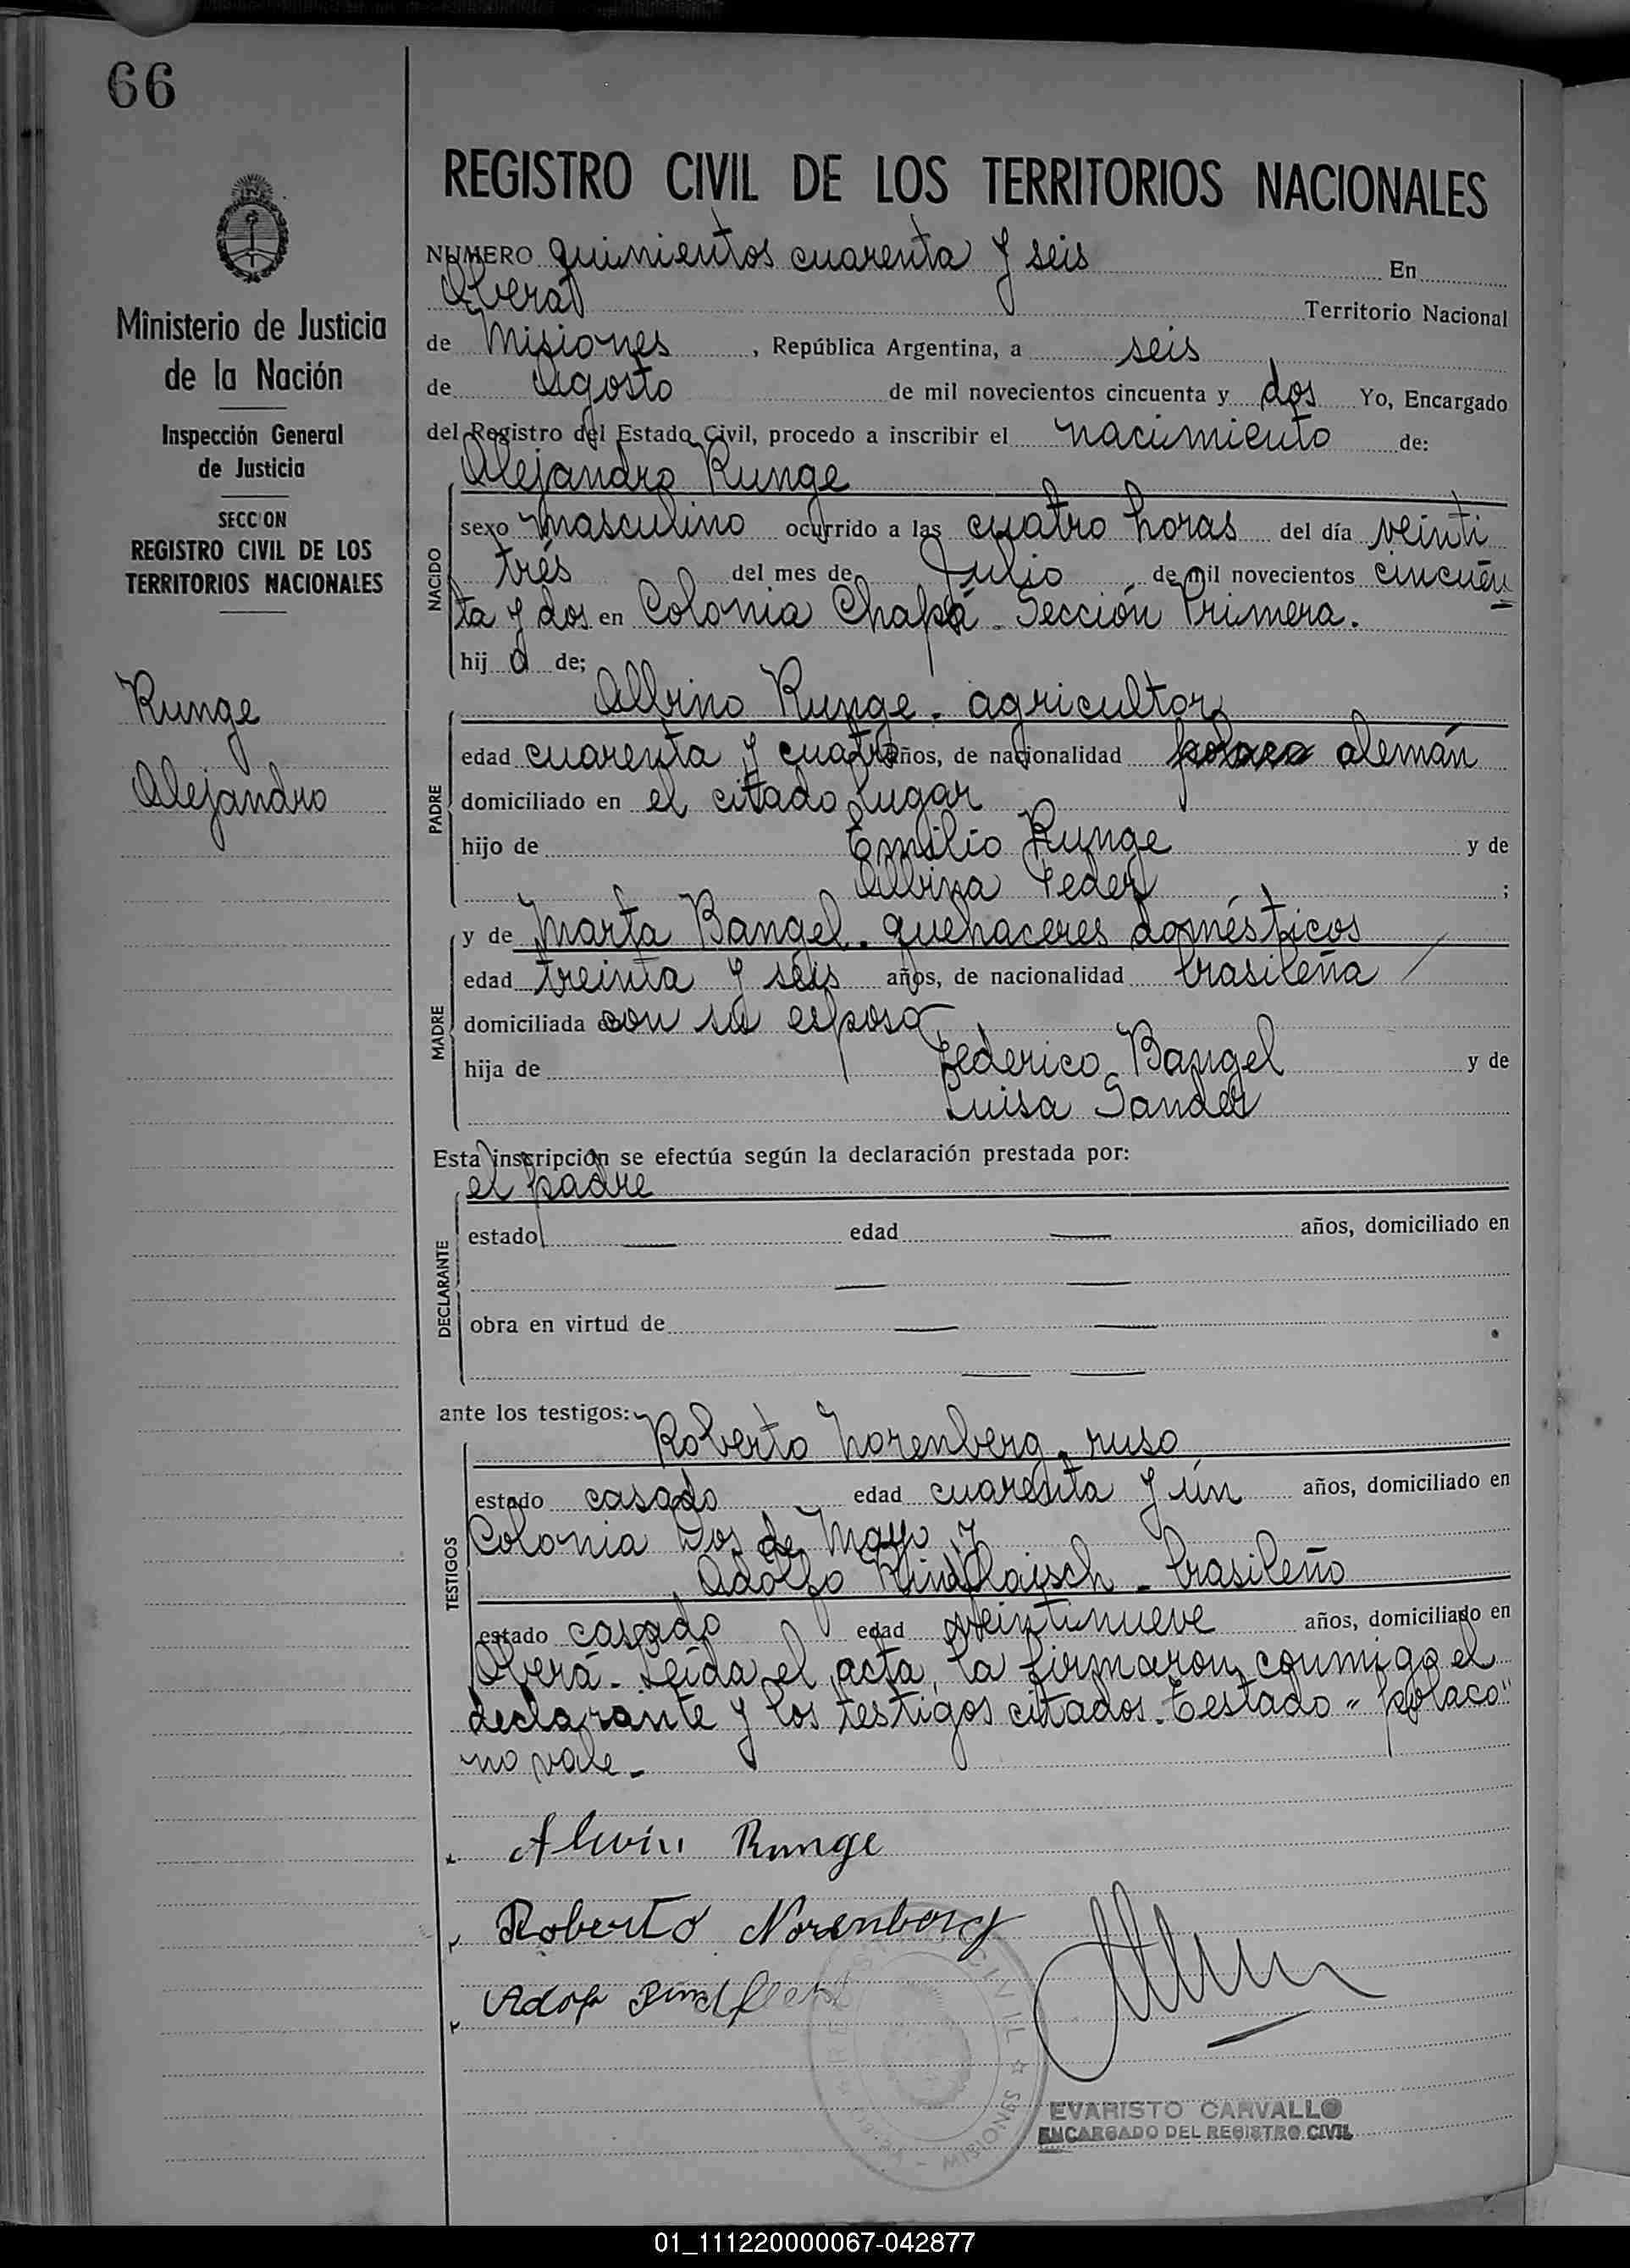 66
REGISTRO CIVIL DE LOS TERRITORIOS NACIONALES
NUMERO quinientos cuarenta y seis En
Oberá Territorio Nacional
de Misiones, República Argentina, a seis
de Agosto de mil novecientos cincuenta y dos Yo, Encargado
del Registro del Estado Civil, procedo a inscribir el nacimiento de:
Alejandro Runge
NACIDO
sexo masculino ocurrido a las cuatro horas del día veinti
trés del mes de Julio de mil novecientos cincuen
ta y dos en Colonia Chapá - Sección Primera.
hijo de;
Albino Runge. agricultor
PADRE
edad cuarenta y cuatro años, de nacionalidad polaco alemán
domiciliado en el citado lugar
hijo de Emilio Runge y de
Albina Feder;
y de Marta Bangel. quehaceres domésticos
MADRE
edad treinta y séis años, de nacionalidad brasileña
domiciliada con su esposo
hija de Federico Bangel y de
Luisa Sander
Esta inscripción se efectúa según la declaración prestada por:
el padre
DECLARANTE
estado — edad — años, domiciliado en
— —
obra en virtud de — —
— —
ante los testigos:
Roberto Norenberg. ruso
TESTIGOS
estado casado edad cuarenta y ún años, domiciliado en
Colonia Dos de Mayo y
Adolfo - brasileño
estado casado edad veintinueve años, domiciliado en
Oberá - Leída el acta, la firmaron conmigo el
declarante y los testigos citados. Testado "polaco"
no vale -
Alwin Runge
Roberto Norenberg
Adolf
CIVIL ☆ MISIONES
EVARISTO CARVALLO
ENCARGADO DEL REGISTRO CIVIL
Ministerio de Justicia
de la Nación
Inspección General
de Justicia
SECCION
REGISTRO CIVIL DE LOS
TERRITORIOS NACIONALES
Runge
Alejandro
01_111220000067-042877